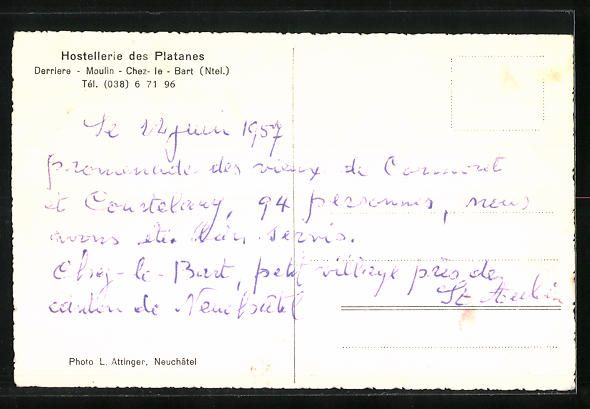 Hostellerie des Platanes
Derriere - Moulin - Chez- le - Bart (Ntel.)
Tél. (038) 6 71 96
Le 12 juin 1957
promenade des vieux de Cormoret
et Courtelary, 94 personnes, nous
avons été bien servis.
Chez-le-Bart, petit village près de
St Aubin
canton de Neuchâtel
Photo L. Attinger, Neuchâtel